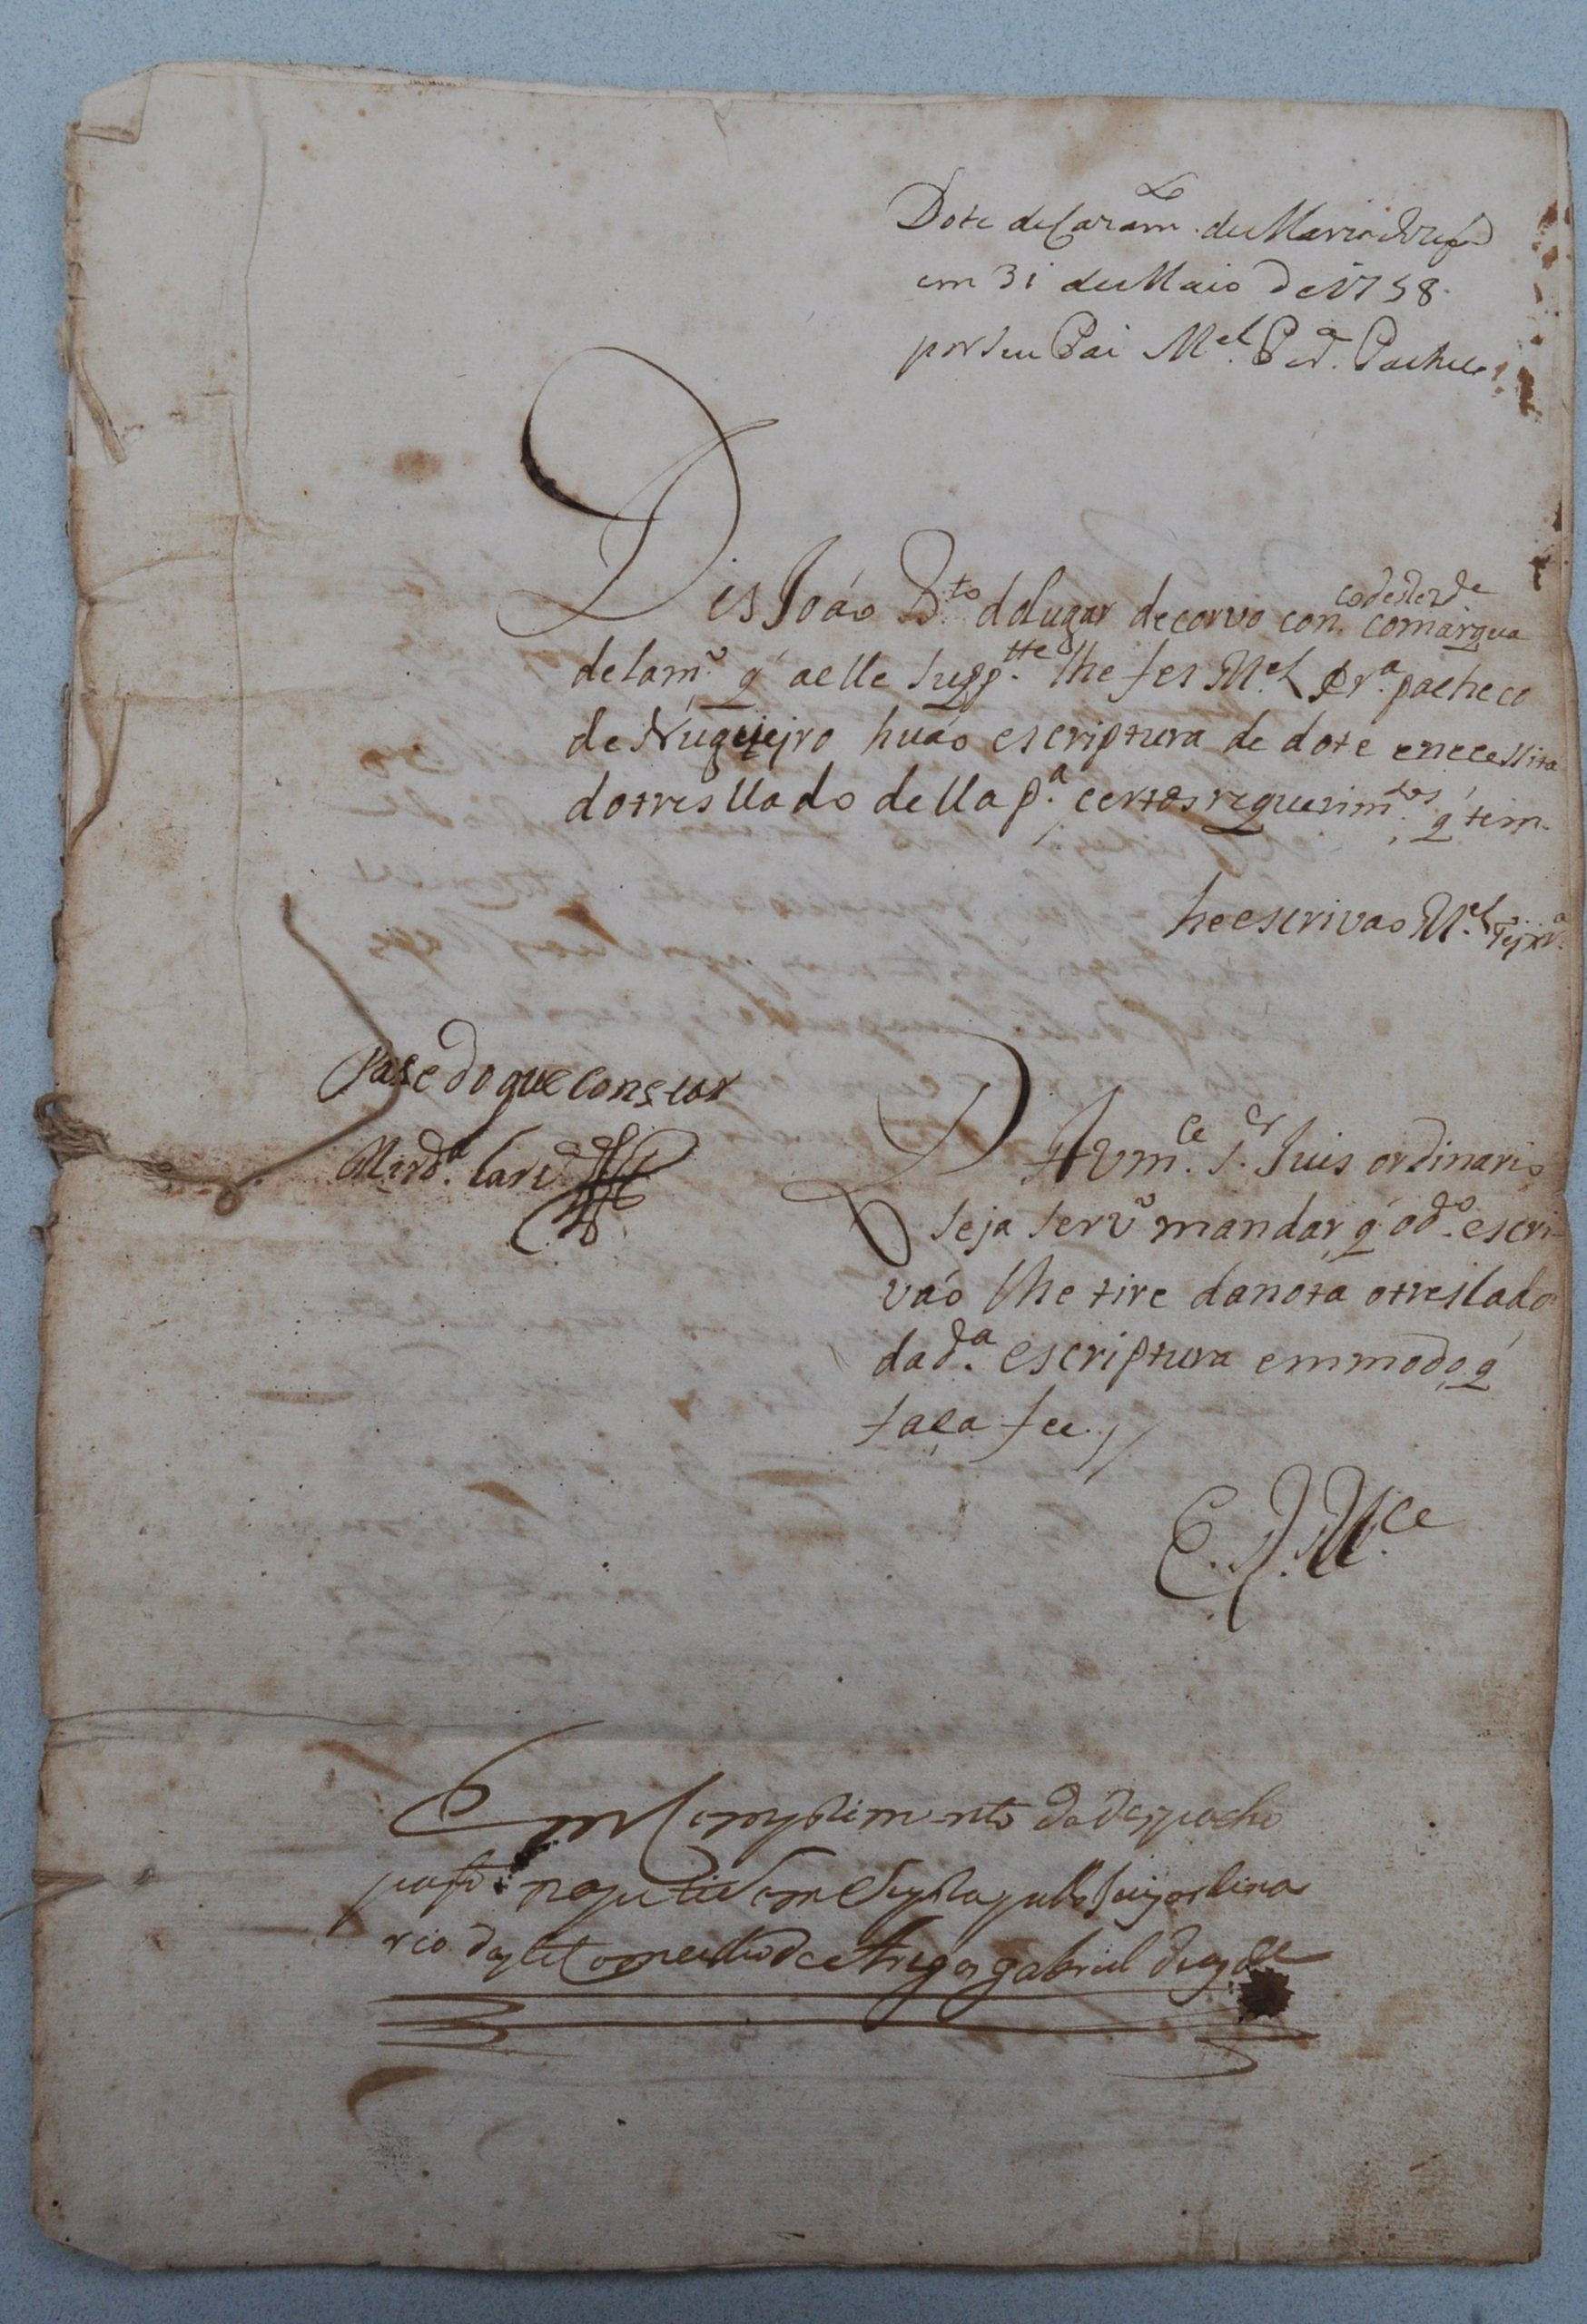 Dote de Cazam.to de Maria Jozefa
em 31 de Maio de 1758.
por seu Pai M.el P.ra Pacheco
Dis João B.to do lugar de corvo con.
co deste de
comargua
de lam.o q' a elle supp.tte lhe fes M.el Pr.a pacheco
de Nugueyro huáo escriptura de dote e necessita
do treslado della p.a certos riquerim.tos q' tem
he escrivao M.el Teyxr.a
Pase do que constar
P A vm.ce S.or Juis ordinario
seja serv.o mandar q' o d.o escri-
váo lhe tire da nota o treslado
da d.a escriptura em modo q'
faça fee //
E. R. M.ce
Em Comprimento do Despacho
posto na petisam Supra pello Juiz ordina
rio deste Comcelho de Aregos gabriel